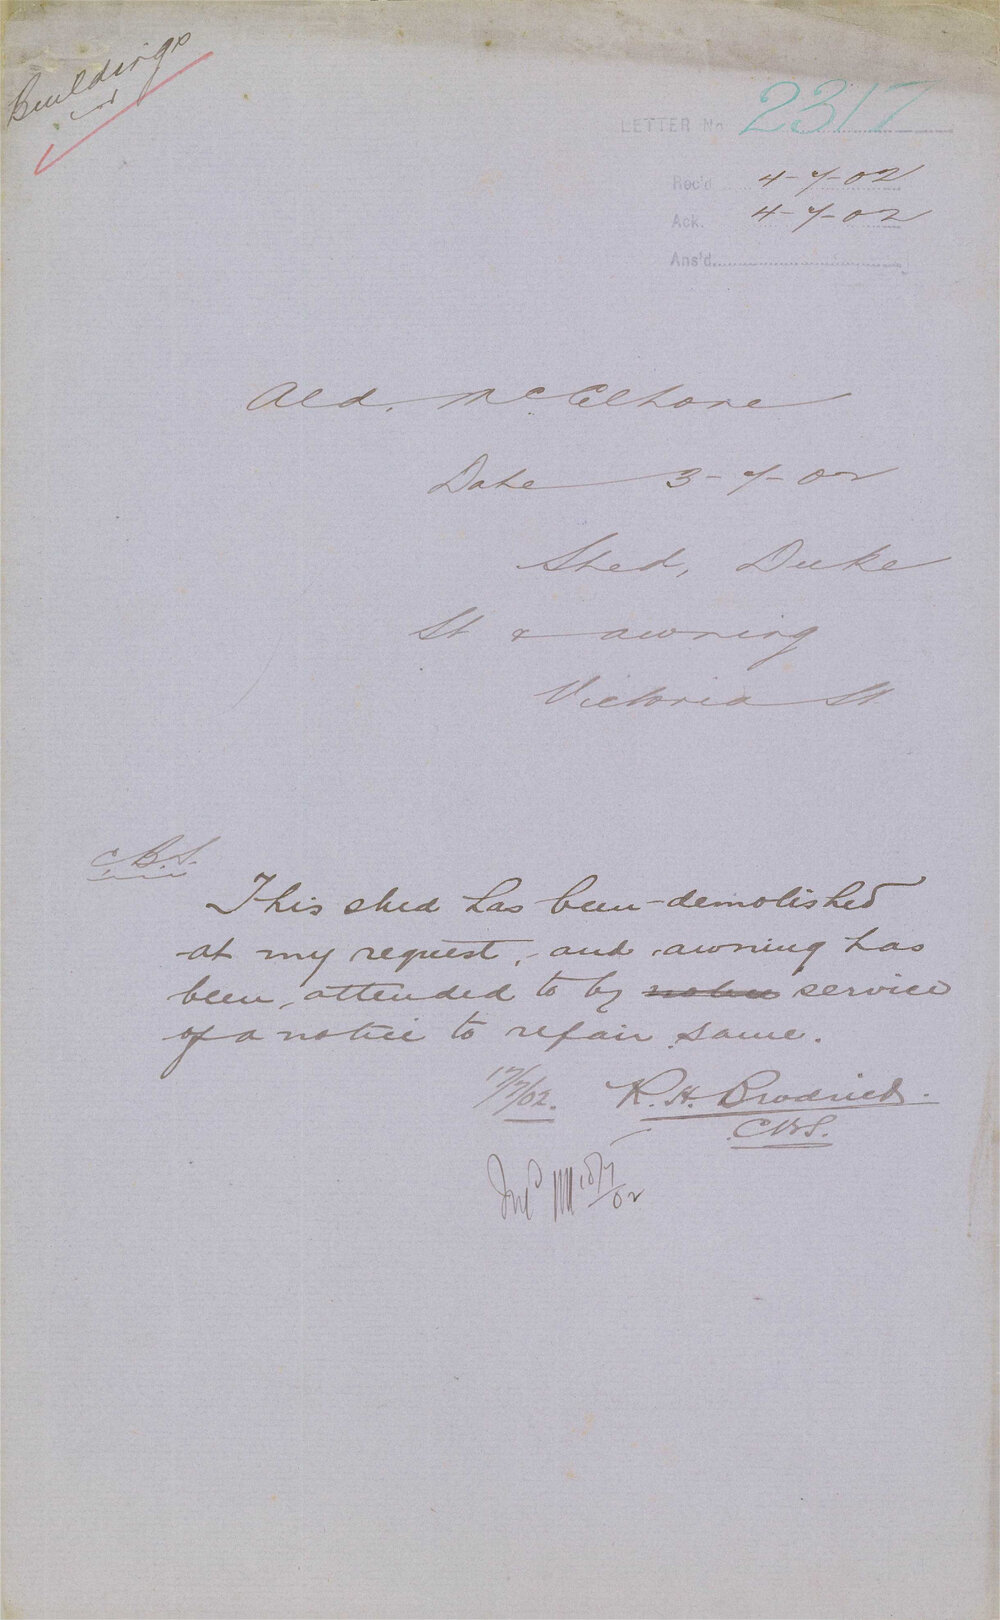 Buildings
LETTER No 2317
Rec'd 4-7-02
Ack. 4-7-02
Ans'd
Ald. McElhone
Date 3-7-02
Shed, Duke
St & awning
Victoria St
C.B.S.
This shed has been demolished
at my request, and awning has
been attended to by notice service
of a notice to repair same.
17/7/02. R. H. Brodrick.
CBS.
18/7/02